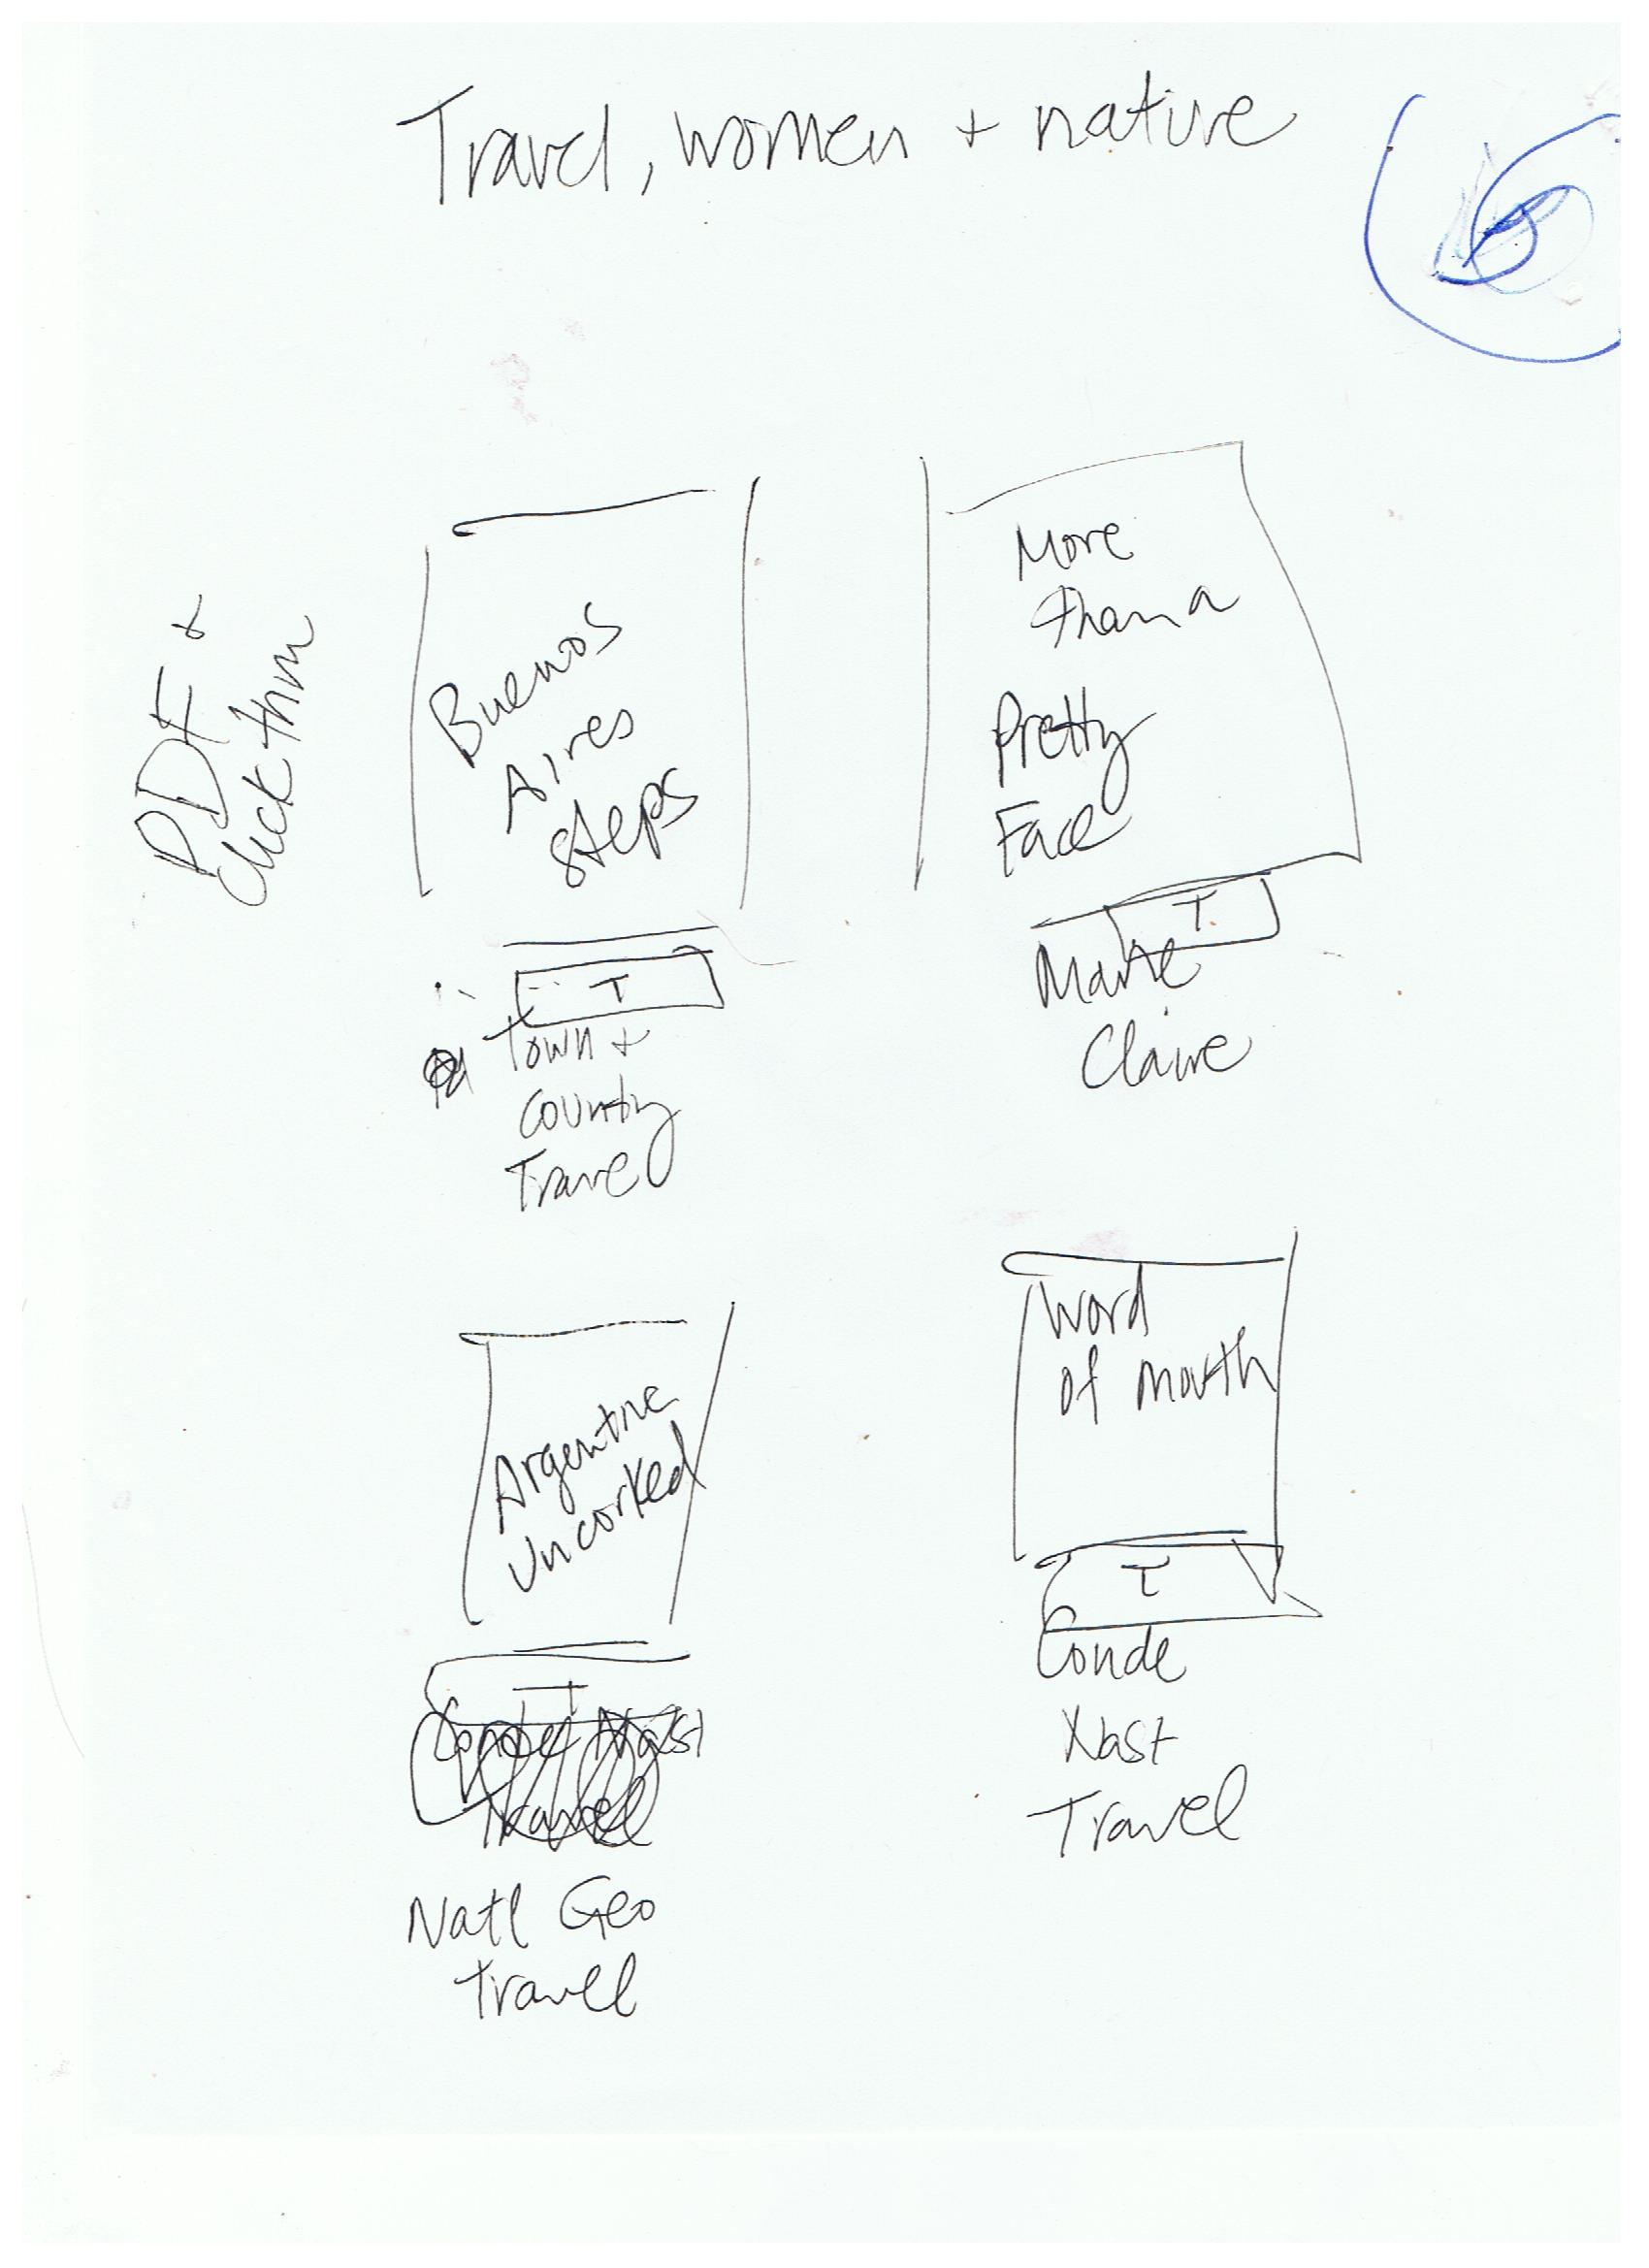 Travel, women + nature
6
PDF +
click thru
Buenos
Aires
steps
T
Town +
Country
Travel
More
than a
Pretty
Face
T
Marie
Claire
Argentine
Uncorked
T
Conde Nast
Travel
Natl Geo
Travel
Word
of mouth
T
Conde
Nast
Travel